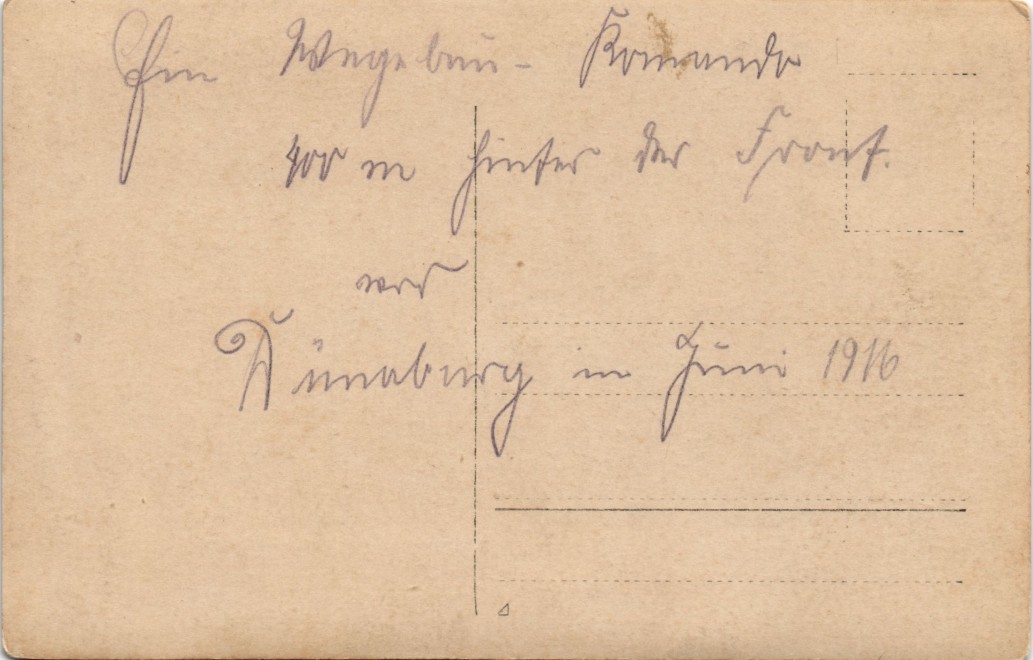 Ein Wegebau- Komando
400 m hinter der Front.
vor
Dünaburg im Juni 1916